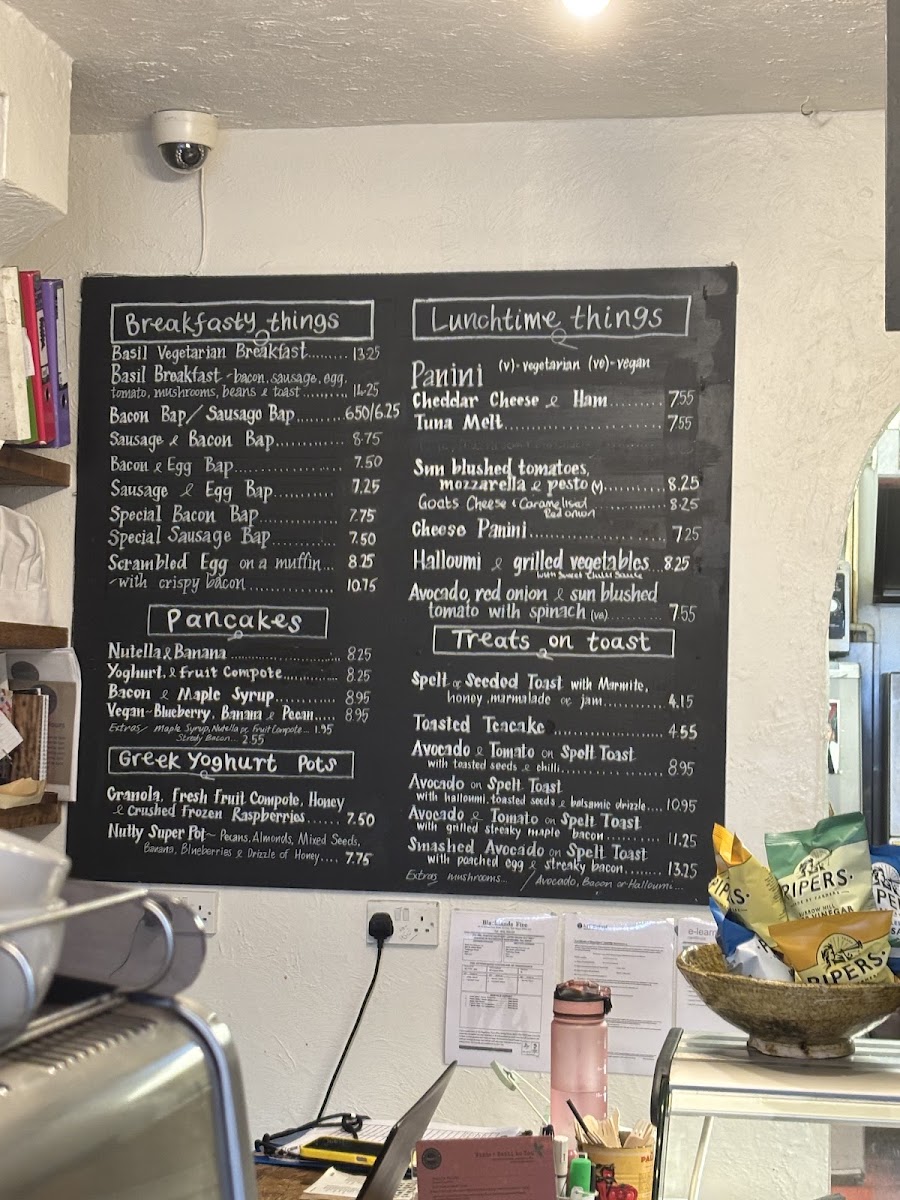 Breakfasty things
Basil Vegetarian Breakfast........ 13.25
Basil Breakfast ~ bacon, sausage, egg,
tomato, mushrooms, beans & toast .......... 14.25
Bacon Bap / Sausage Bap....... 6.50/6.25
Sausage & Bacon Bap............ 8.75
Bacon & Egg Bap.................... 7.50
Sausage & Egg Bap............ 7.25
Special Bacon Bap............... 7.75
Special Sausage Bap............ 7.50
Scrambled Egg on a muffin... 8.25
~with crispy bacon................ 10.75
Pancakes
Nutella & Banana ........................ 8.25
Yoghurt, & Fruit Compote.............. 8.25
Bacon & Maple Syrup............. 8.95
Vegan~ Blueberry, Banana & Pecan..... 8.95
Extras/ Maple Syrup, Nutella or Fruit Compote... 1.95
Streaky Bacon... 2.55
Greek Yoghurt Pots
Granola, Fresh Fruit Compote, Honey
& Crushed Frozen Raspberries....... 7.50
Nutty Super Pot~ Pecans, Almonds, Mixed Seeds,
Banana, Blueberries & Drizzle of Honey.... 7.75
Lunchtime things
(v)-vegetarian (ve)-vegan
Panini
Cheddar Cheese & Ham.......... 7.55
Tuna Melt............................. 7.55
Sun blushed tomatoes,
mozzarella & pesto (v)........... 8.25
Goats Cheese & Caramelised
Red onion ............... 8.25
Cheese Panini........................ 7.25
Halloumi & grilled vegetables... 8.25
with Sweet Chilli Sauce
Avocado, red onion & sun blushed
tomato with spinach (ve)........... 7.55
Treats on toast
Spelt or Seeded Toast with Marmite,
honey, marmalade or jam............ 4.15
Toasted Teacake ...................... 4.55
Avocado & Tomato on Spelt Toast
with toasted seeds & chilli.................. 8.95
Avocado on Spelt Toast
with halloumi, toasted seeds & balsamic drizzle.... 10.95
Avocado & Tomato on Spelt Toast
with grilled streaky maple bacon.......... 11.25
Smashed Avocado on Spelt Toast
with poached egg & streaky bacon....... 13.25
Extras mushrooms... / Avocado, Bacon or Halloumi...
PIPERS
VINEGAR
PIPERS
e-learn